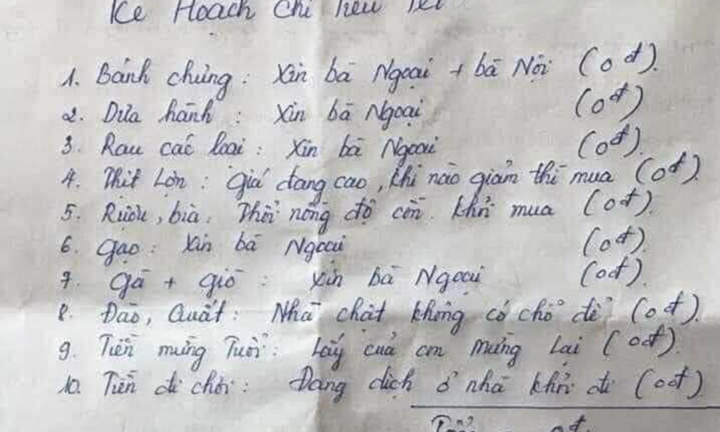 Kế Hoạch Chi Tiêu Tết
1. Bánh chưng: Xin bà Ngoại + bà Nội (0đ).
2. Dưa hành: Xin bà Ngoại (0đ)
3. Rau các loại: Xin bà Ngoại (0đ).
4. Thịt Lợn: Giá đang cao, khi nào giảm thì mua (0đ).
5. Rượu, bia: Thổi nồng độ cồn. Khỏi mua (0đ).
6. Gạo: Xin bà Ngoại (0đ).
7. Gà + giò: Xin bà Ngoại (0đ).
8. Đào, Quất: Nhà chật không có chỗ để (0đ).
9. Tiền mừng Tuổi: Lấy của con mừng Lại (0đ).
10. Tiền đi chơi: Đang dịch ở nhà khỏi đi (0đ)
0đ